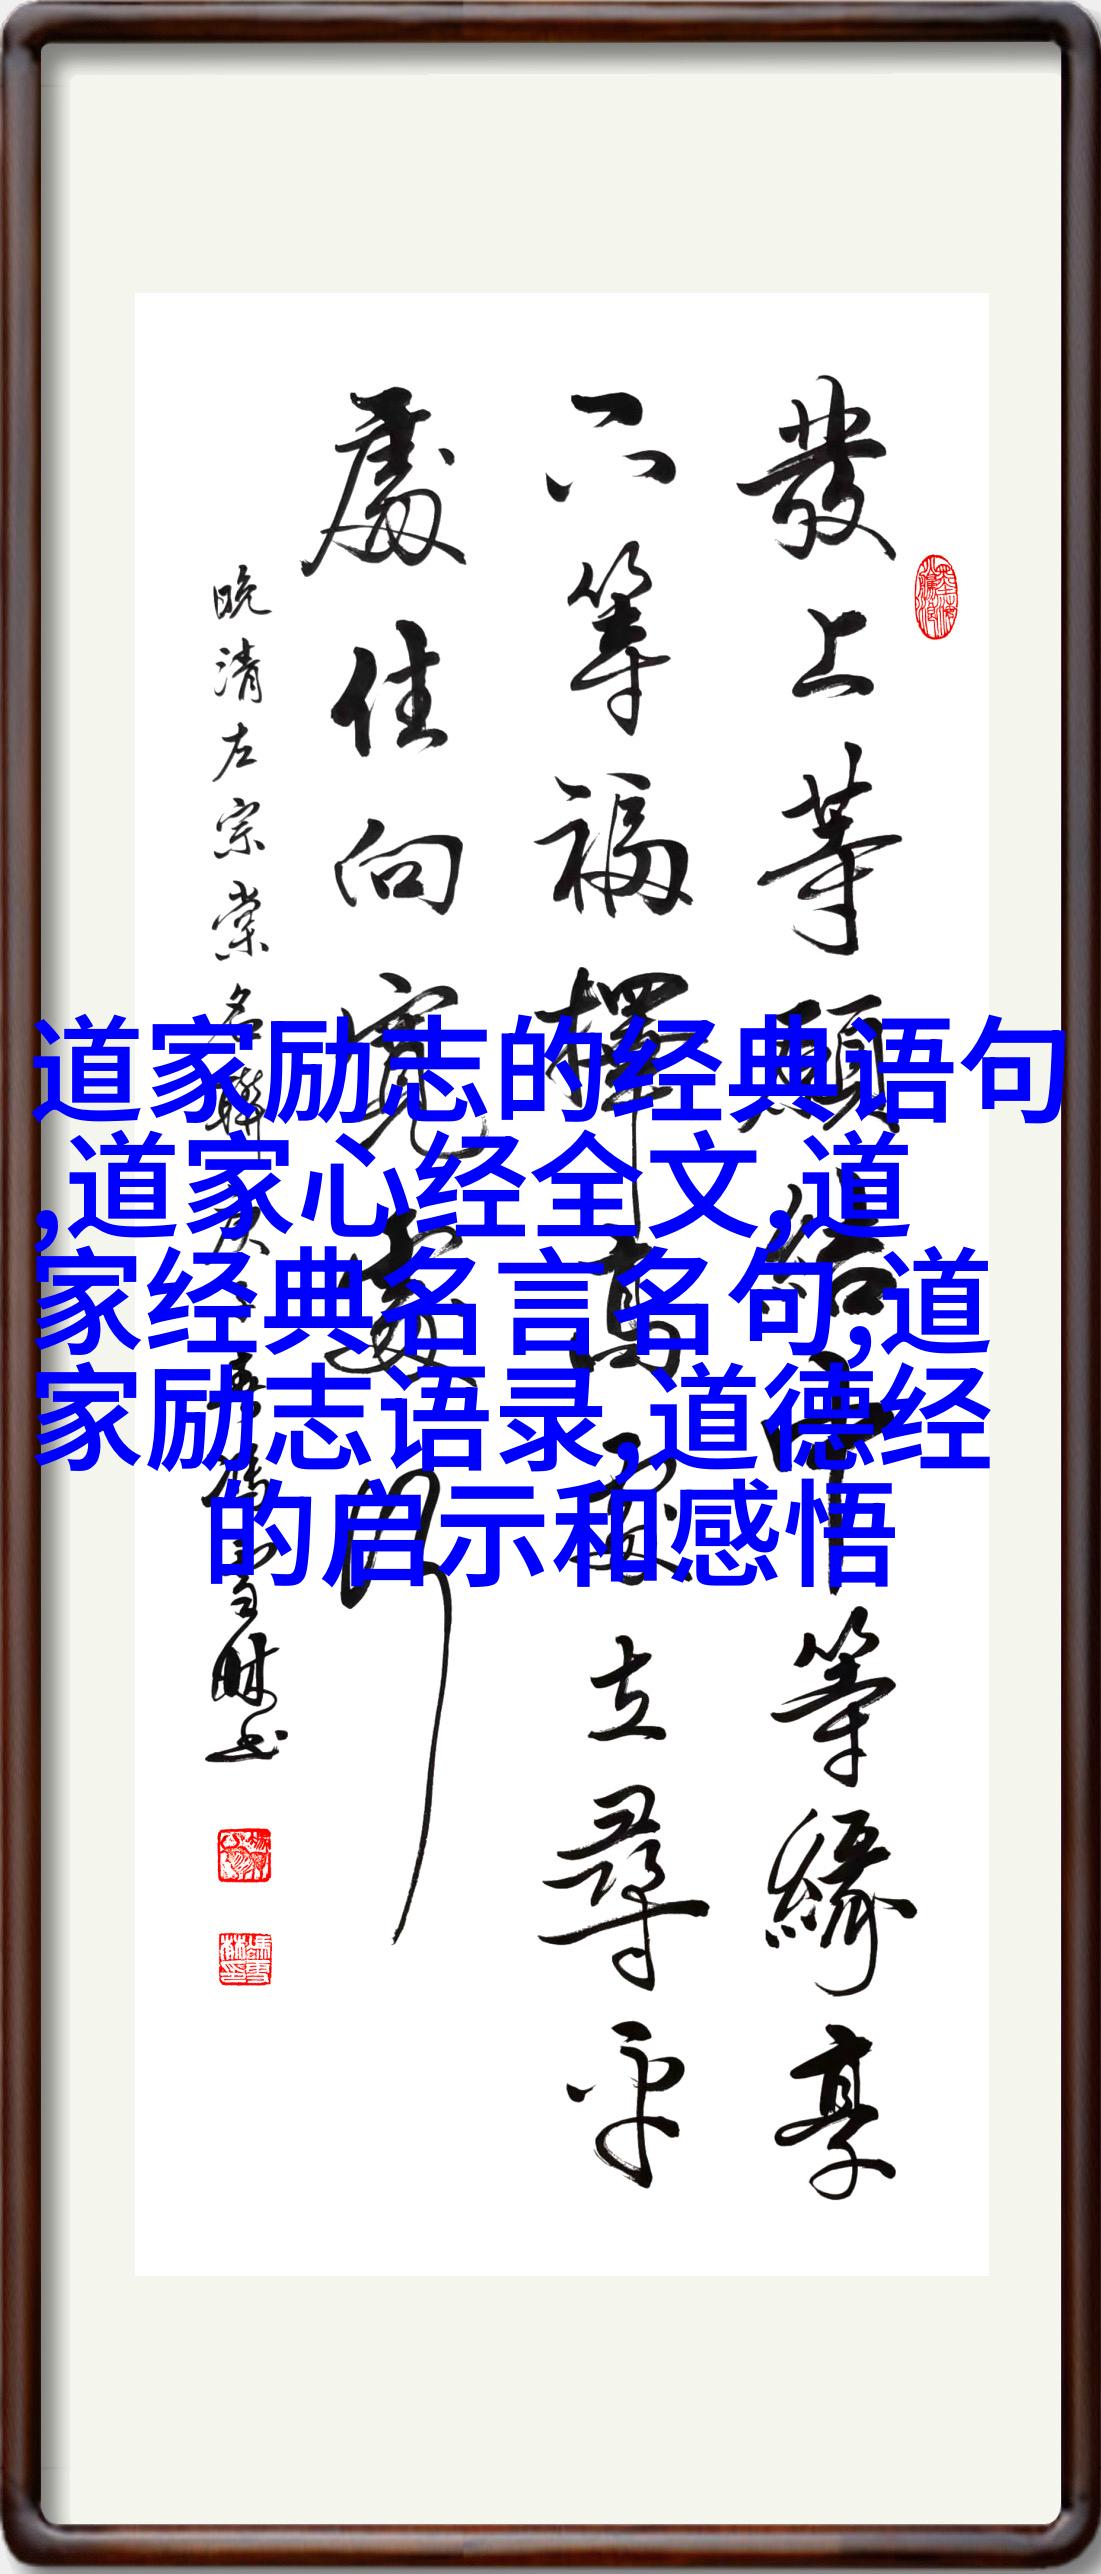 發上等願結中等緣享
下等福擇高處立尋平
處住向寬處行
晚清左宗棠名聯
道家励志的经典语句
,道家心经全文,道
家经典名言名句,道
家励志语录,道德经
的启示和感悟